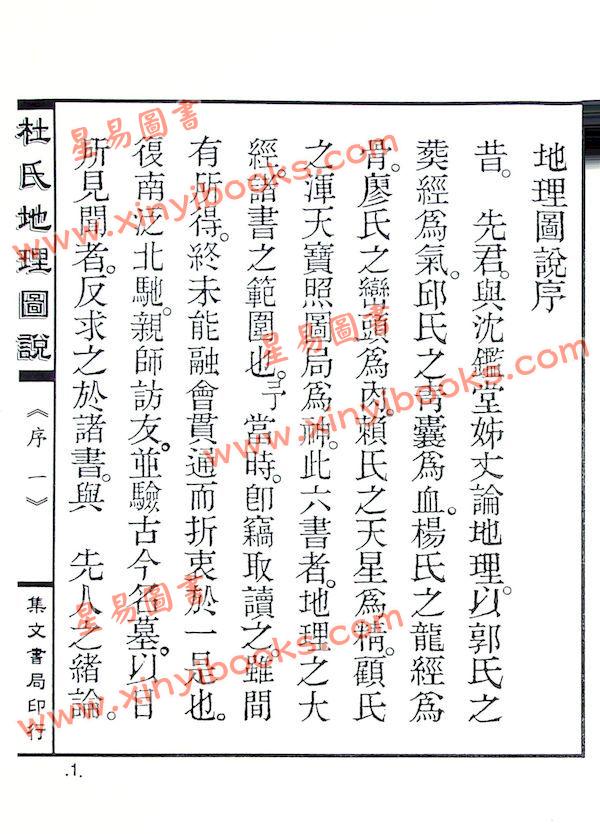 地理圖說序
昔。 先君。與沈鑑堂姊丈論地理。以郭氏之
葬經爲氣。邱氏之青囊爲血。楊氏之龍經爲
骨。廖氏之巒頭爲肉。賴氏之天星爲精。顧氏
之渾天寶照圖局爲神。此六書者。地理之大
經。諸書之範圍也。予 當時。卽竊取讀之。雖間
有所得。終未能融會貫通而折衷於一是也。
復南泛北馳。親師訪友。並驗古今名墓。以目
所見聞者。反求之於諸書。與 先人之緒論。
杜氏地理圖說
《序一》
集文書局印行
.1.
星易圖書
www.xinyibooks.com
星易圖書
www.xinyibooks.com
星易圖書
www.xinyibooks.com